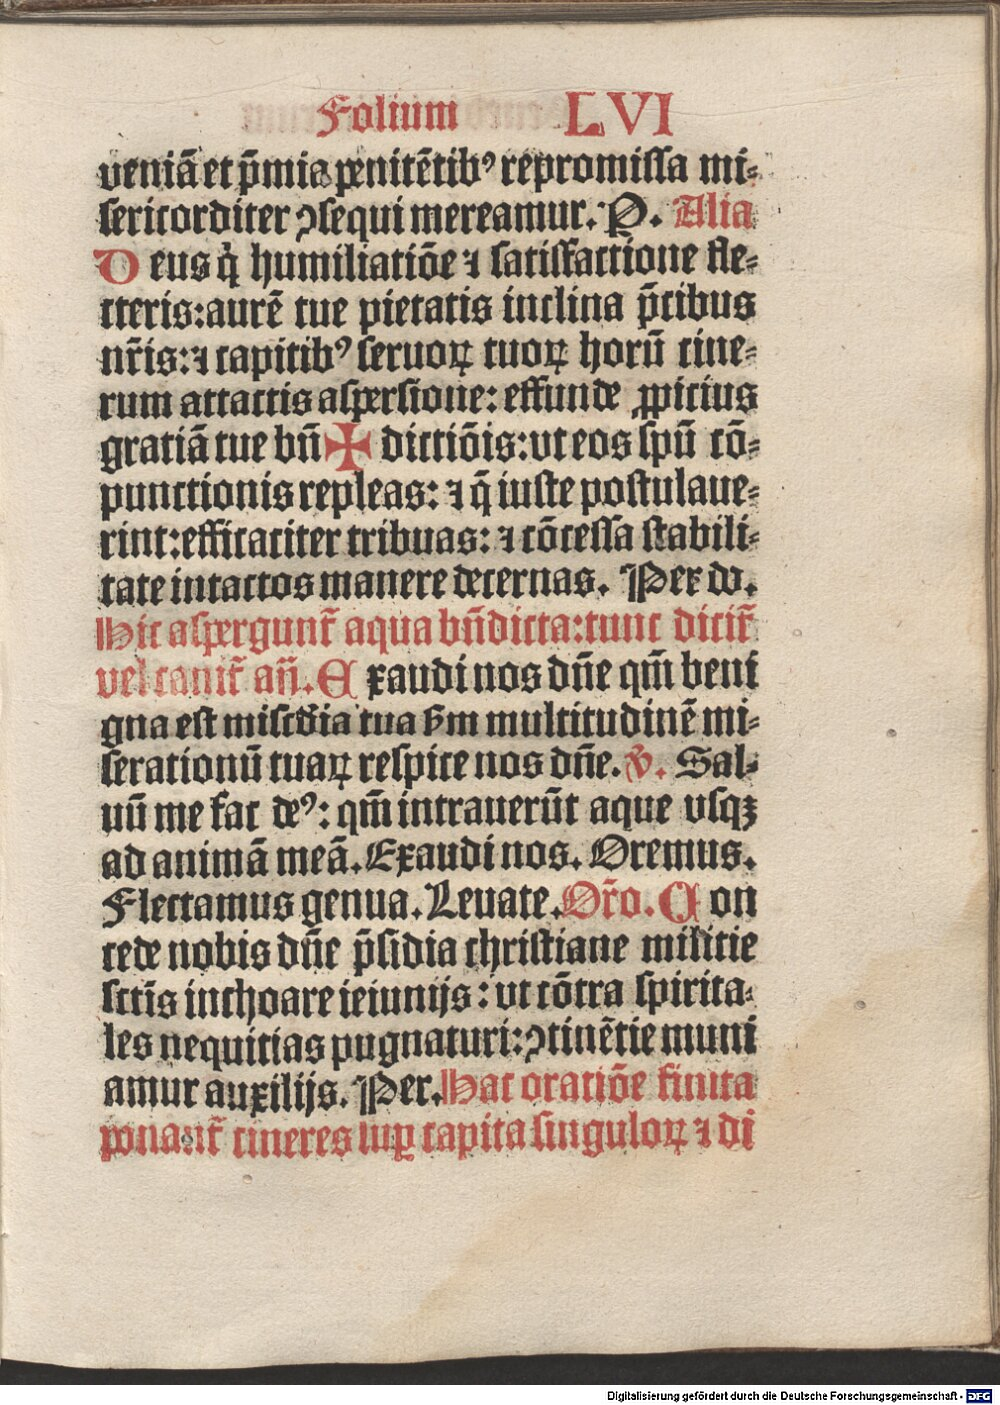 Folium LVI
veniā et p̄mia penitētibꝰ repromissa mi⸗
sericorditer ꝯsequi mereamur. P. Alia
Deus q̇ humiliatiōe ⁊ satisfactione fle⸗
cteris: aurē tue pietatis inclina p̄cibus
nr̄is: ⁊ capitibꝰ seruoꝝ tuoꝝ horū cine⸗
rum attactis aspersione: effunde ꝓpicius
gratiā tue bn̄ ✠ dictiōis: vt eos spū cō⸗
punctionis repleas: ⁊ q̄ iuste postulaue⸗
rint: efficaciter tribuas: ⁊ cōcessa stabili⸗
tate intactos manere decernas. Per dn̄.
Hic aspergunt̄ aqua bn̄dicta: tunc dicit̄
vel canit̄ añ. Exaudi nos dn̄e qm̄ beni
gna est misc̄dia tua s̄m multitudinē mi⸗
serationū tuaꝝ respice nos dn̄e. v̄. Sal⸗
uū me fac deꝰ: qm̄ intrauerūt aque vsqꝫ
ad animā meā. Exaudi nos. Oremus.
Flectamus genua. Leuate. Or̄o. Con
cede nobis dn̄e p̄sidia christiane militie
sctīs inchoare ieiunijs: vt cōtra spirita⸗
les nequitias pugnaturi: ꝯtinētie muni
amur auxilijs. Per. Hac oratiōe finita
ponant̄ cineres suꝑ capita singuloꝝ ⁊ di
Digitalisierung gefördert durch die Deutsche Forschungsgemeinschaft - DFG